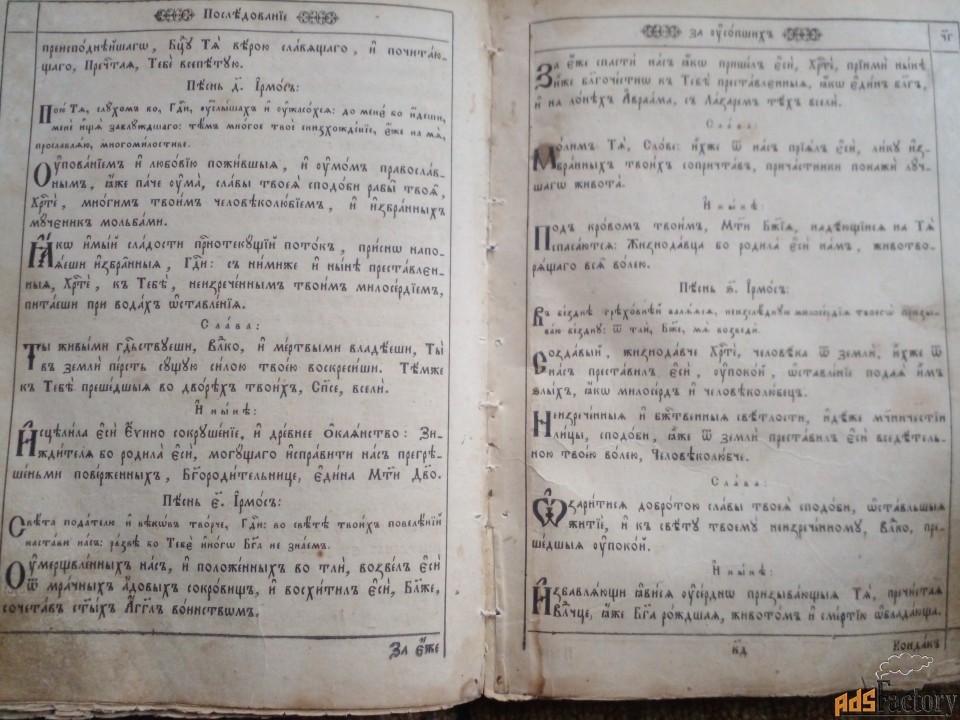 Послѣ́дованїе
преиспо́днѣйшагѡ, Бц҃у Тѧ̀ вѣ́рою сла́вѧщаго, и҆ почита́ю-
щаго, Пречⷭ҇таѧ, Тебѐ всепѣ́тую.
Пѣ́снь д҃. І҆рмо́съ:
Пою́ Тѧ, слу́хомъ бо, Гдⷭ҇и, ᲂу҆слы́шахъ и҆ ᲂу҆жасо́хсѧ: до менє́ бо и҆́деши,
менѐ и҆щѧ̀ заблу́ждшаго: тѣ́мъ мно́гое твоѐ снизхожде́нїе, є҆́же на мѧ̀,
прославлѧ́ю, многоми́лостиве.
Оу҆пова́нїемъ и҆ любо́вїю пожи́вшыѧ, и҆ ᲂу҆мо́мъ правосла́в-
нымъ, ꙗ҆̀же па́че ᲂу҆ма̀, сла́вы твоеѧ̀ сподо́би рабы̑ твоѧ̑,
Хрⷭ҇тѐ, мно́гимъ твои́мъ человѣколю́бїемъ, и҆ и҆збра́нныхъ
мч҃еникъ мольба́ми.
Ꙗ҆́кѡ и҆мы́й сла́дости прⷭ҇нотеку́щїй пото́къ, при́снѡ напо-
ѧ́еши и҆збра̑нныѧ, Гдⷭ҇и: съ ни́миже и҆ ны́нѣ преста́влен-
ныѧ, Хрⷭ҇тѐ, къ Тебѣ̀, неизрече́ннымъ твои́мъ милосе́рдїемъ,
пита́еши при вода́хъ ѡ҆ставле́нїѧ.
Сла́ва:
Ты̀ живы́ми гдⷭ҇ьствуеши, Влⷣко, и҆ ме́ртвыми владѣ́еши, Ты̀
въ землѝ пе́рсть су́щую си́лою твое́ю воскреси́ши. Тѣ́мже
къ Тебѣ̀ преше́дшыѧ во дво́рѣхъ твои́хъ, Спⷭ҇се, вселѝ.
И҆ ны́нѣ:
И҆сцѣли́ла є҆сѝ Є҆́ѵино сокруше́нїе, и҆ дре́внее ѻ҆каѧ́нство: Зи-
жди́телѧ бо родила̀ є҆сѝ, могу́щаго и҆спра́вити на́съ прегрѣ-
ше́ньми пове́рженныхъ, Бг҃ороди́тельнице, є҆ди́на Мт҃и Дв҃о.
Пѣ́снь є҃. І҆рмо́съ:
Свѣ́та пода́телю и҆ вѣкѡ́въ тво́рче, Гдⷭ҇и: во свѣ́тѣ твои́хъ повелѣ́нїй
наста́ви на́съ: ра́звѣ бо Тебє̀ и҆но́гѡ Бг҃а не зна́емъ.
Оу҆мерщвле́нныхъ на́съ, и҆ положе́нныхъ во тлѝ, возве́лъ є҆сѝ
ѿ мра́чныхъ а҆́довыхъ сокро́вищъ, и҆ восхи́тилъ є҆сѝ, Бл҃же,
сочета́въ ст҃ы́хъ А҆́гг҃лъ во́инствѡмъ.
За є҆́же
за ᲂу҆со́пшихъ
ч҃г
За є҆́же спастѝ на́съ ꙗ҆́кѡ прише́лъ є҆сѝ, Хрⷭ҇тѐ, прїимѝ ны́нѣ
ꙗ҆̀же бл҃гоче́стнѡ къ Тебѣ̀ преста́вленныѧ, ꙗ҆́кѡ є҆ди́нъ бл҃гъ,
и҆ на ло́нѣхъ А҆враа́ма, съ Ла́заремъ тѣ́хъ вселѝ.
Сла́ва:
Мо́лимъ Тѧ̀, Сло́ве: и҆̀хже ѿ на́съ прїѧ́лъ є҆сѝ, ли́ку и҆з-
бра́нныхъ твои́хъ сопричта́въ, прича́стники покажѝ лу́ч-
шагѡ живота̀.
И҆ ны́нѣ:
Подъ кро́вомъ твои́мъ, Мт҃и Бж҃їѧ, надѣ́ющїисѧ на Тѧ̀
спаса́ютсѧ: Жизнода́вца бо родила̀ є҆сѝ на́мъ, животво-
рѧ́щаго всѧ̑ во́лею.
Пѣ́снь ѕ҃. І҆рмо́съ:
Въ бе́зднѣ грѣхо́внѣй валѧ́ѧсѧ, неизслѣ́дную милосе́рдїѧ твоегѡ̀ призы-
ва́ю бе́здну: ѿ тлѝ, Бж҃е, мѧ̀ возведѝ.
Созда́вый, жизнода́вче Хрⷭ҇тѐ, человѣ́ка ѿ землѝ, и҆̀хже ѿ
на́съ преста́вилъ є҆сѝ, ᲂу҆поко́й, ѡ҆ставле́нїе подаѧ̀ и҆̀мъ
ѕлы́хъ, ꙗ҆́кѡ милосе́рдъ и҆ человѣколю́бецъ.
Неизрече́нныѧ и҆ бжⷭ҇твенныѧ свѣ́тлости, и҆дѣ́же мч҃нчестїи
ли́цы, сподо́би, ꙗ҆̀же ѿ землѝ преста́вилъ є҆сѝ вседѣ́тель-
ною твое́ю во́лею, Человѣколю́бче.
Сла́ва:
Ѡ҆зари́тисѧ добро́тою сла́вы твоеѧ̀ сподо́би, ѡ҆ста́вльшыѧ
житїѐ, и҆ къ свѣ́ту твоему̀ неизрече́нному, Влⷣко, пре-
ше́дшыѧ ᲂу҆поко́й.
И҆ ны́нѣ:
И҆збавлѧ́ющи ꙗ҆ви́сѧ ᲂу҆се́рднѡ призыва́ющыѧ Тѧ̀, пречи́стаѧ
Влⷣчце, ꙗ҆́же Бг҃а ро́ждшаѧ, живото́мъ и҆ сме́ртїю ѡ҆блада́юща.
к҃д
Конда́къ
ADSFactory